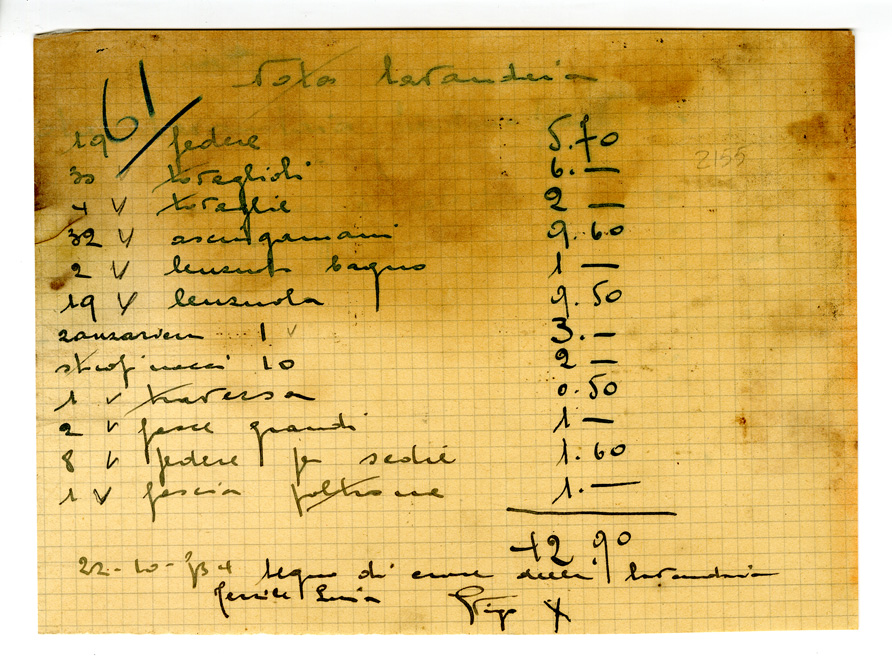 Nota lavandeia
61
19 federe 5.70
30 tovaglioli 6.—
4 v tovaglie 2 —
2155
32 v asciugamani 9.60
2 v lenzuol bagno 1 —
19 v lenzuola 9.50
zanzariera 1 v 3.—
strofinacci 10 2 —
1 v traversa 0.50
2 v fasce grandi 1 —
8 v federe per sedie 1.60
1 v fascia poltrone 1.—
42 90
22-10-34 segno di croce della lavandaia
Luisa X